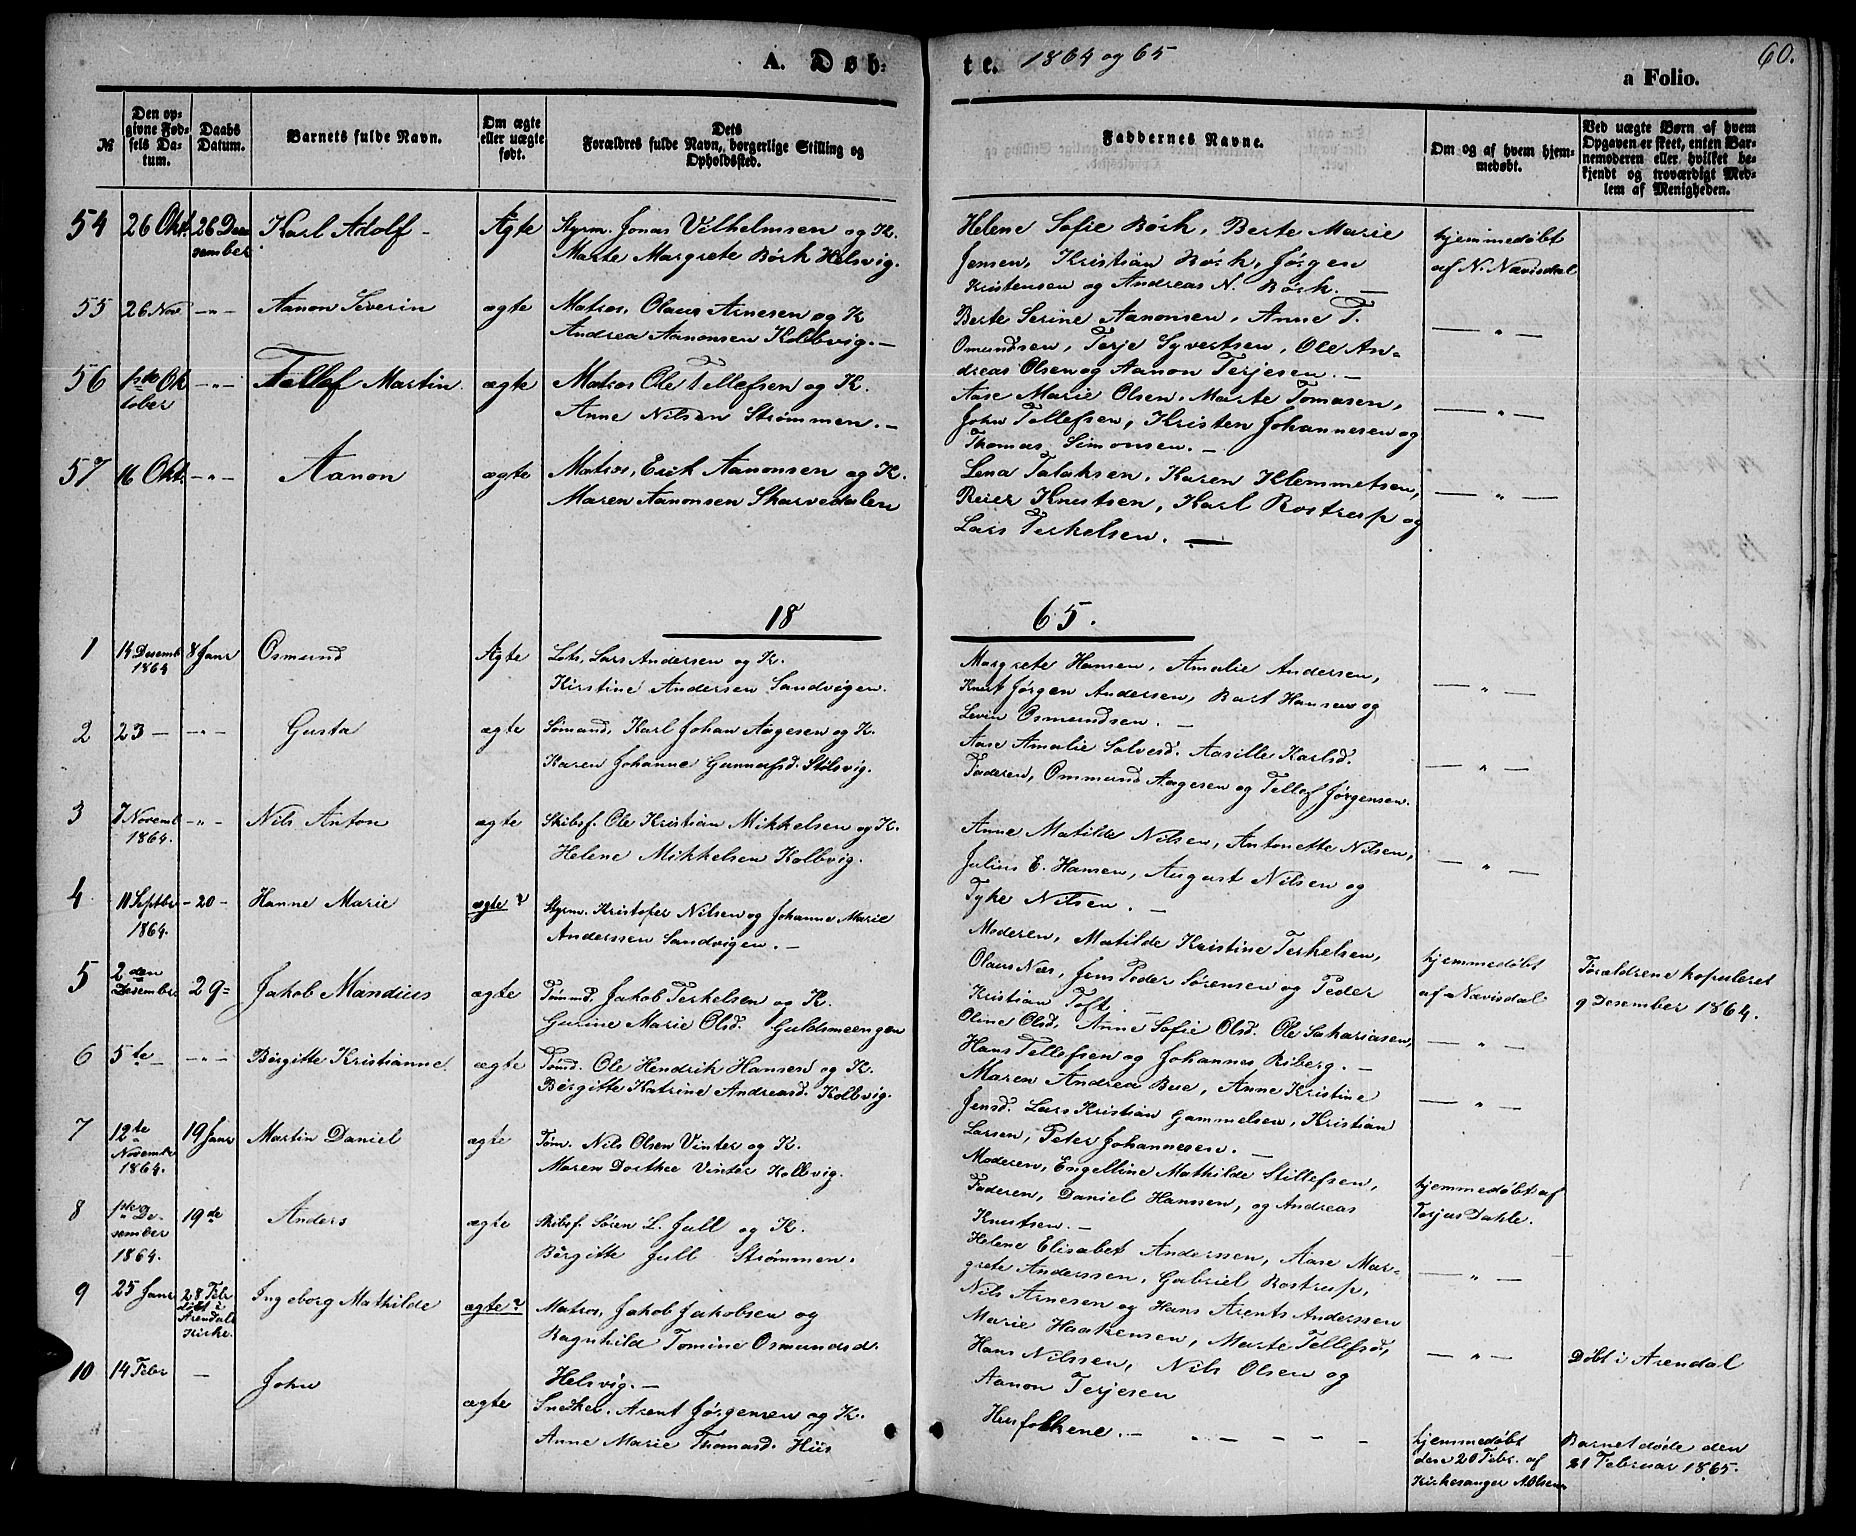 A. Døb-
te. 1864 og 65
a Folio.
60.
№
Den op-
givne Fød-
sels Da-
tum.
Daabs
Datum.
Barnets fulde Navn.
Om ægte
eller uægte
født.
Dets
Forældres fulde Navn, borgerlige Stilling og
Opholdssted.
Faddernes Navne.
Om og af hvem hjem-
medøbt.
Ved uægte Børn af hvem
Opgaven er skeet, enten Bar-
nemoderen eller hvilket be-
kjendt og troværdigt Med-
lem af Menigheden.
54 26 Okt. 26 De-
sember
Karl Adolf - Ægte
Styrm. Jonas Vilhelmsen og K.
Marte Margrete Börk Helsvig.
Helene Sofie Börk, Berte Marie
Jensen, Kristian Börk, Jørgen
Kristensen og Andreas N. Börk. -
hjemmedøbt
af N. Nævisdal
55 26 Nov. -"- Aanon Severin ægte
Matros, Olaus Arnesen og K
Andrea Aanonsen Kolbvig. -
Berte Serine Aanonsen, Anne T.
Omundsen, Terje Syvertsen, Ole An-
dreas Olsen og Aanon Terjesen. -
- " -
56 1ste Ok
tober -"- Tellef Martin. ægte
Matros Ole Tellefsen og K.
Anne Nilsen Strømmen. -
Aase Marie Olsen, Marte Tomasen,
John Tellefsen, Kristen Johannesen og
Thomas Simonsen. -
- " -
57 16 Okt. -"- Aanon ægte
Matros, Erik Aanonsen og K.
Maren Aanonsen Skarvedalen
Lena Talaksen, Karen Klemmetsen,
Reier Knutsen, Karl Rostrup og
Lars Terkelsen. -
- " -
18 65.
1 14 Desemb
1864 8 Janr Osmund Ægte
Lots, Lars Andersen og K.
Kirstine Andersen Sandvigen.
Margrete Hansen, Amalie Andersen,
Knut Jørgen Andersen, Bart Hansen og
Levin Osmundsen. -
- " -
2 23 - -"- Gusta ægte
Sömand, Karl Johan Aagesen og K.
Karen Johanne Gunnufsd. Stølsvig.
Aase Amalie Salvesd. Aasille Karlsd.
Faderen, Ommund Aagesen og Tellef Jørgensen.
- " -
3 7 Novemb
1864. -"- Nils Anton ægte
Skibsf. Ole Kristian Mikkelsen og K.
Helene Mikkelsen Kolbvig.
Anne Matilde Nilsen, Antonette Nilsen,
Julius E. Hansen, August Nilsen og
Tyke Nilsen. -
- " -
4 11 Septbr
1864. - 20 - Hanne Marie ægte?
Styrm. Kristofer Nilsen og Johanne Marie
Anderssen Sandvigen. -
Moderen, Matilde Kristine Terkelsen,
Olaus Næs, Jens Peder Sørensen og Peder
Kristian Toft. -
hjemmedøbt
af Nævisdal
Forældrene kopuleret
9 Desember 1864.
5 2den
Desembr 29- Jakob Mandius ægte
Tömmd. Jakob Terkelsen og K.
Gurine Marie Olsd. Guldsmeengen
Oline Olsd, Anne Sofie Olsd. Ole Sakariasen,
Hans Tellefsen og Johannes Riberg. -
- " -
6 5te -"- Birgitte Kristianne. ægte
Tömd. Ole Hendrik Hansen og K.
Birgitte Katrine Andreasd. Kolbvig.
Maren Andrea Bue, Anne Kristine
Jensd. Lars Kristian Gammelsen, Kristian
Larsen, Peter Johannesen. -
- " -
7 12te
Novembr
1864. 19 Janr Martin Daniel ægte
Töm. Nils Olsen Vinter og K.
Maren Dorthee Vinter Kolbvig.
Moderen, Engelline Mathilde Stillefsen,
Faderen, Daniel Hanssen, og Andreas
Knutsen. -
hjemmedøbt af
Torjus Dahle.
8 1ste De-
sember
1864. 19de Anders ægte
Skibsf. Sören L. Jull og K.
Birgitte Jull Strømmen.
Helene Elisabet Anderssen, Aase Mar-
grete Anderssen, Gabriel Rostrup,
Nils Arnesen og Hans Arents Anderssen
- " -
9 25 Janr 28 Febr
døbt i
Arendals
Kirke. Ingeborg Mathilde ægte?
Matros, Jakob Jakobsen og
Ragnhild Tomine Osmundsd.
Helsvig. -
Marie Haakensen, Marte Tellefsd,
Hans Nilssen, Nils Olsen og
Aanon Terjesen
- " -
Døbt i Arendal
10 14 Febr - John ægte
Snedker. Arent Jørgensen og K.
Anne Marie Thomasd. Hiis
Husfolkene. - " - - - -
hjemmedøbt
den 20 Febr. af
Kirkesanger A. Olsen
Barnet døde den
21 Februar 1865.